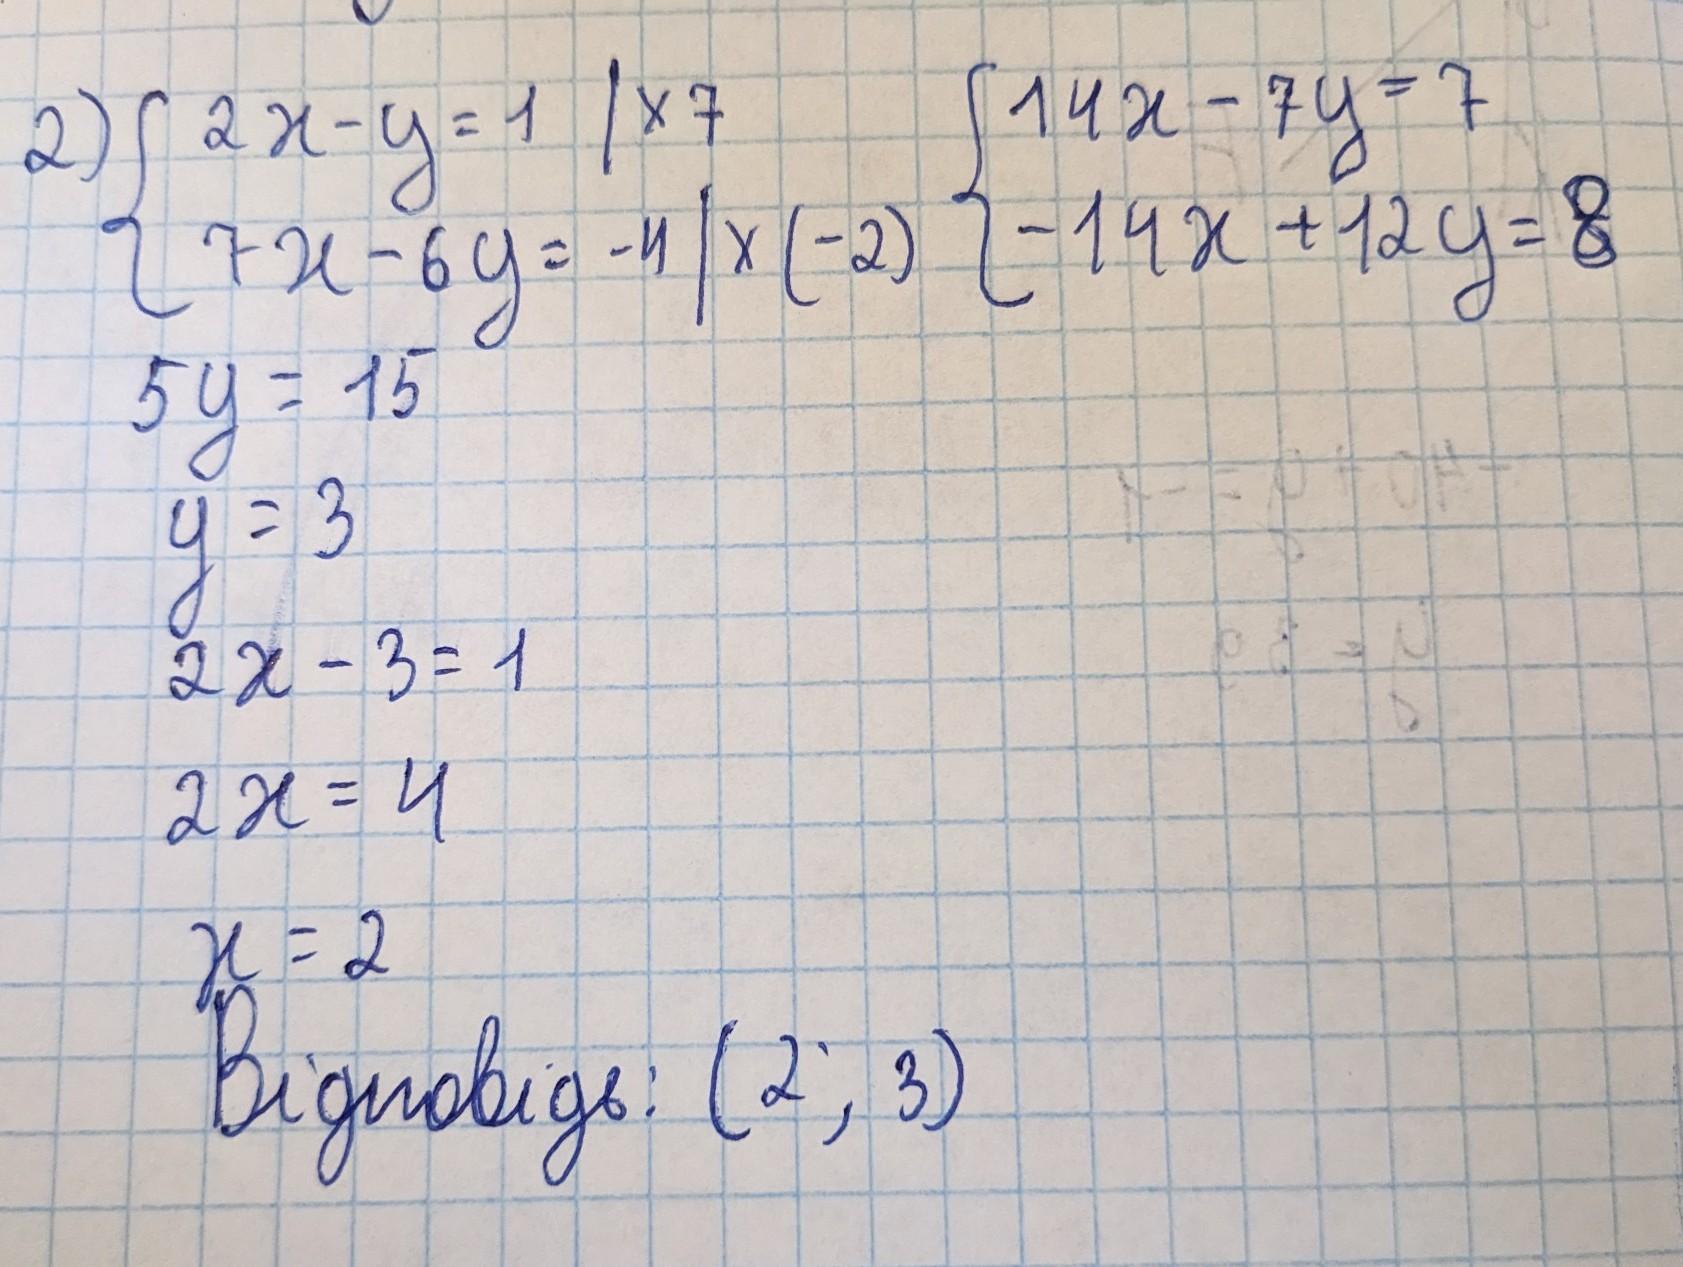 2) { 2x - y = 1 | × 7 { 14x - 7y = 7
7x - 6y = -4 | × (-2) -14x + 12y = 8
5y = 15
y = 3
2x - 3 = 1
2x = 4
x = 2
Відповідь: (2; 3)